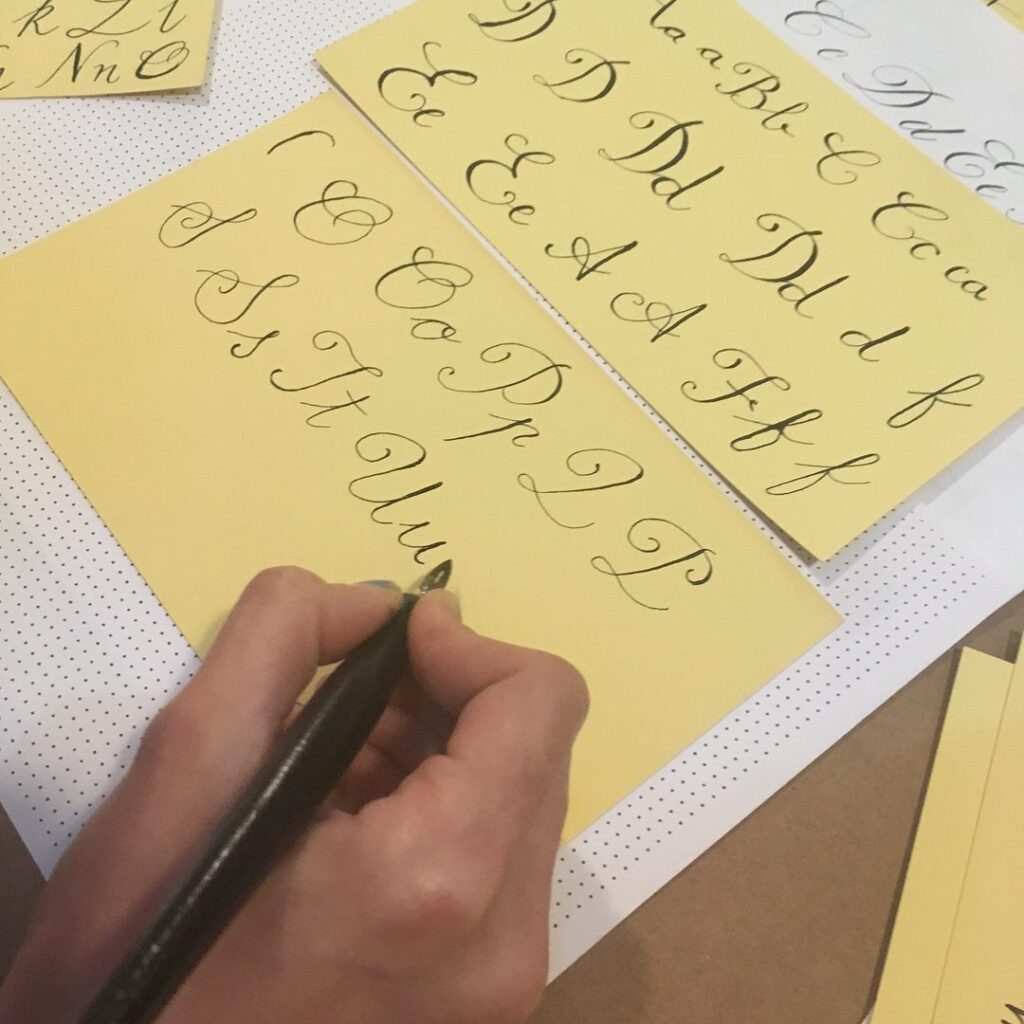 k L l
Nn O
Cc Dd Ee
Aa a Bb C Cc ca
D D Dd Dd d f
Ee Ee A A Ff f
O Oo Pp Q
S Ss Tt Uu